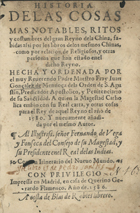 HISTORIA
DE LAS COSAS
MAS NOTABLES, RITOS
y costumbres, del gran Reyno de la China, sa-
bidas assi por los libros delos mesmos Chinas,
como por relacion de Religiosos, y otras
personas que han estado enel
dicho Reyno.
HECHA Y ORDENADA POR
el muy Reverendo Padre Maestro Fray Joan
Gonçalez de Mendoça dela Orden de S. Au-
gustin, Predicador Apostolico, y Penitenciario
de su Sanctidad. A quien su Magestad Catho-
lica embio con su Real carta, y otras cosas
para el Rey de aquel Reyno el año de
1580. Y nuevamente añadida
por el mesmo Autor.
Al Illustriss. señor Fernando de Vega
y Fonseca del Consejo de su Magestad, y
su Presidente enel Real delas Indias.
Con un Itinerario del Nuevo Mundo.
CON PRIVILEGIO
Impresso en Madrid, en casa de Querino
Gerardo Flamenco. Año de 1586.
A costa de Blas de Robles